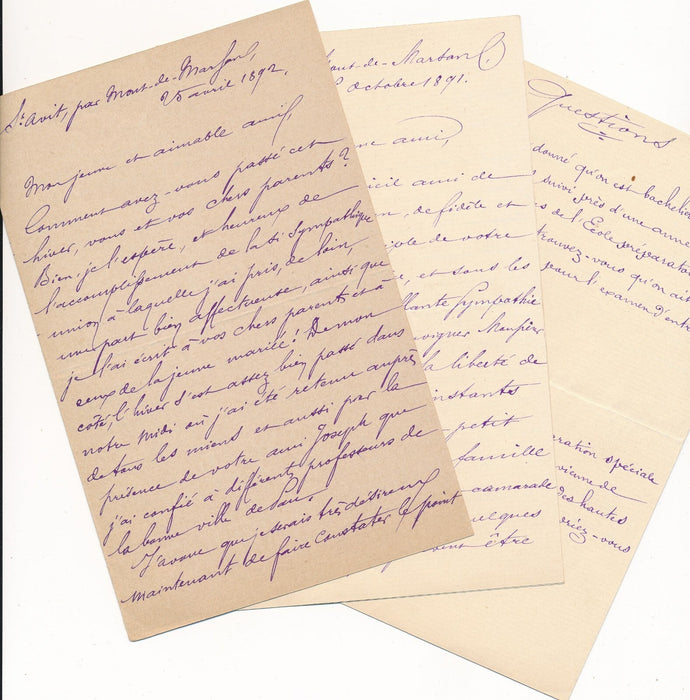 St Avit, par Mont-de-Marsan,
25 avril 1892.
Mon jeune et aimable ami,
Comment avez-vous passé cet
hiver, vous et vos chers parents?
Bien, je l'espère, et heureux de
l'accomplissement de la si sympathique
union à laquelle j'ai pris, de loin,
une part bien affectueuse, ainsi que
je l'ai écrit à vos chers parents et à
ceux de la jeune mariée! De mon
côté, l'hiver s'est assez bien passé dans
notre Midi où j'ai été retenu auprès
de tous les miens et aussi par la
présence de votre ami Joseph que
j'ai confié à différents professeurs de
la bonne ville de Pau.
J'avoue que je serais très désireux
maintenant de faire constater le point
Mont-de-Marsan
Octobre 1891.
ami,
ami de
de fidèle et
de votre
et sous les
Sympathie
Monsieur
la liberté de
instants
petit
famille
camarade
quelques
être
Questions
donné qu'on est bachelier
suivi près d'une année
de l'École préparatoire
trouvez-vous qu'on ait
pour l'examen d'entrée
spéciale
vienne de
des hautes
vous